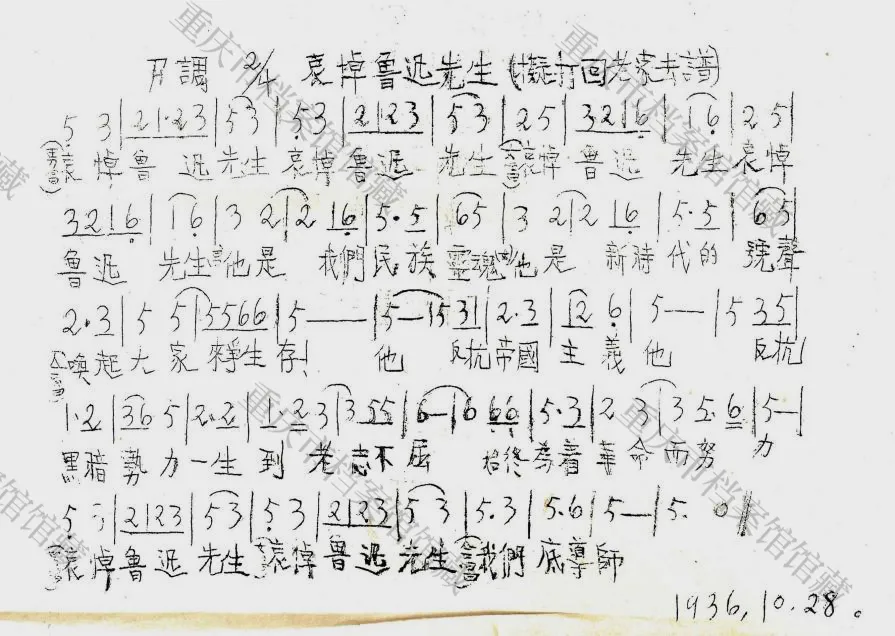 調 2/4 哀悼魯迅先生(擬打回老家去譜)
5 3|2 1·2 3|5 3|5 3|2 1 2 3|5 3|2 5|3 2 1 6|1 6|2 5|
哀悼魯迅先生哀悼魯迅先生哀悼魯迅先生哀悼
3 2 1 6|1 6|3 2|2 1 6|5·5|6 5|3 2|2 1 6|5·5|6 5|
魯迅先生他是我們民族靈魂他是新時代的號聲
2·3|5 5|5 5 6 6|5——|5—|5 3 1|2·3|1 2 6|5—|5 3 5|
喚起大家來爭生存!他反抗帝國主義他反抗
1·2|3 6 5|2·2|1·2 3|3 5 5|6—|6 6 6|5·3|2 3|3 5·6|5—|
黑暗勢力一生到老志不屈始終為着革命而努力
5 3|2 1 2 3|5 3|5 3|2 1 2 3|5 3|5·3|5·6|5—|5· 0‖
哀悼魯迅先生哀悼魯迅先生我們底導師
1936,10.28。
重庆市档案馆馆藏
重庆市档案馆馆藏
重庆市档案馆馆藏
重庆市档案馆馆藏